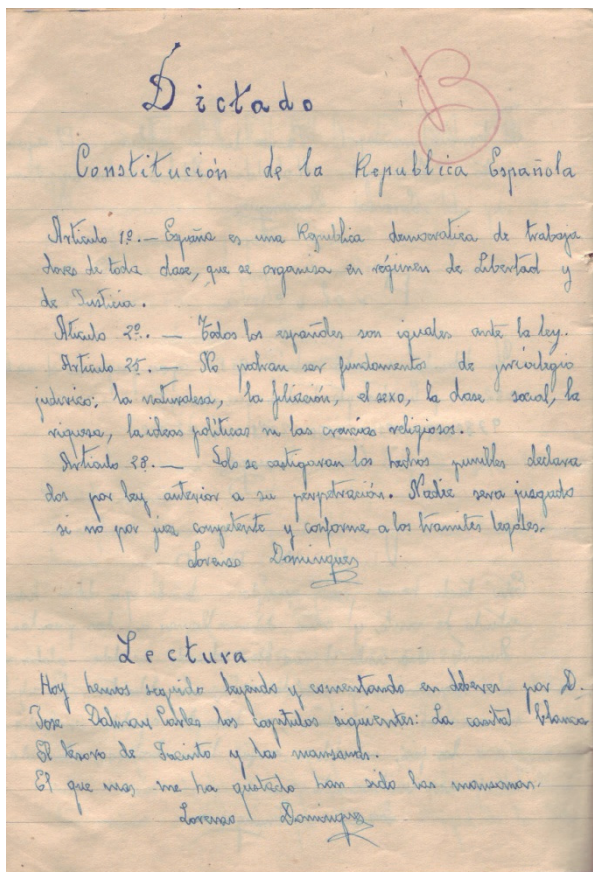 Dictado
B
Constitución de la Republica Española
Articulo 1º.— España es una Republica democratica de trabaja
dores de toda clase, que se organisa en régimen de Libertad y
de Justicia.
Aticulo 2º. — Todos los españoles son iguales ante la ley.
Articulo 25. — No podran ser fundamentos de privilegio
juridico: la naturalesa, la filiación, el sexo, la clase social, la
riquesa, la ideas politicas ni las crencias religiosos.
Articulo 28. — Solo se castigaran los hechos punibles declara
dos por ley anterior a su perpetración. Nadie sera jusgado
si no por jues competente y conforme a los tramites legales.
Lorenso Domingues
Lectura
Hoy hemos seguido leyendo y comentando en deberes por D.
Jose Dalmau Carles los capitulos siguientes: La blanca
El tesoro de Jacinto y las mansanas.
El que mas me ha gustado han sido las mansanas.
Lorenso Domingues